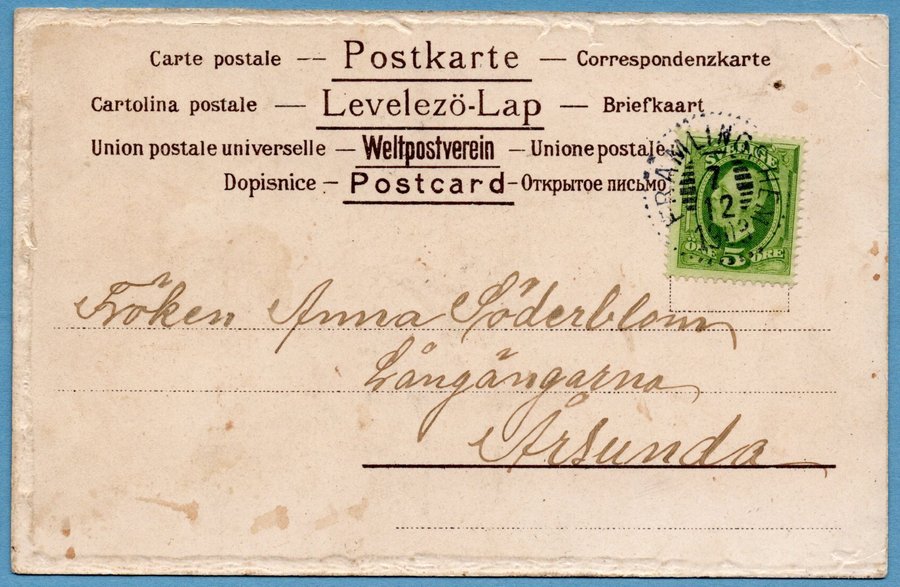 Carte postale — Postkarte — Correspondenzkarte
Cartolina postale — Levelezö-Lap — Briefkaart
Union postale universelle — Weltpostverein — Unione postale
Dopisnice — Postcard — Открытое письмо
FRÄMLINGSHEM
SVERIGE
7
12
1903
5 ÖRE
Fröken Anna Söderblom
Långängarna
Årsunda